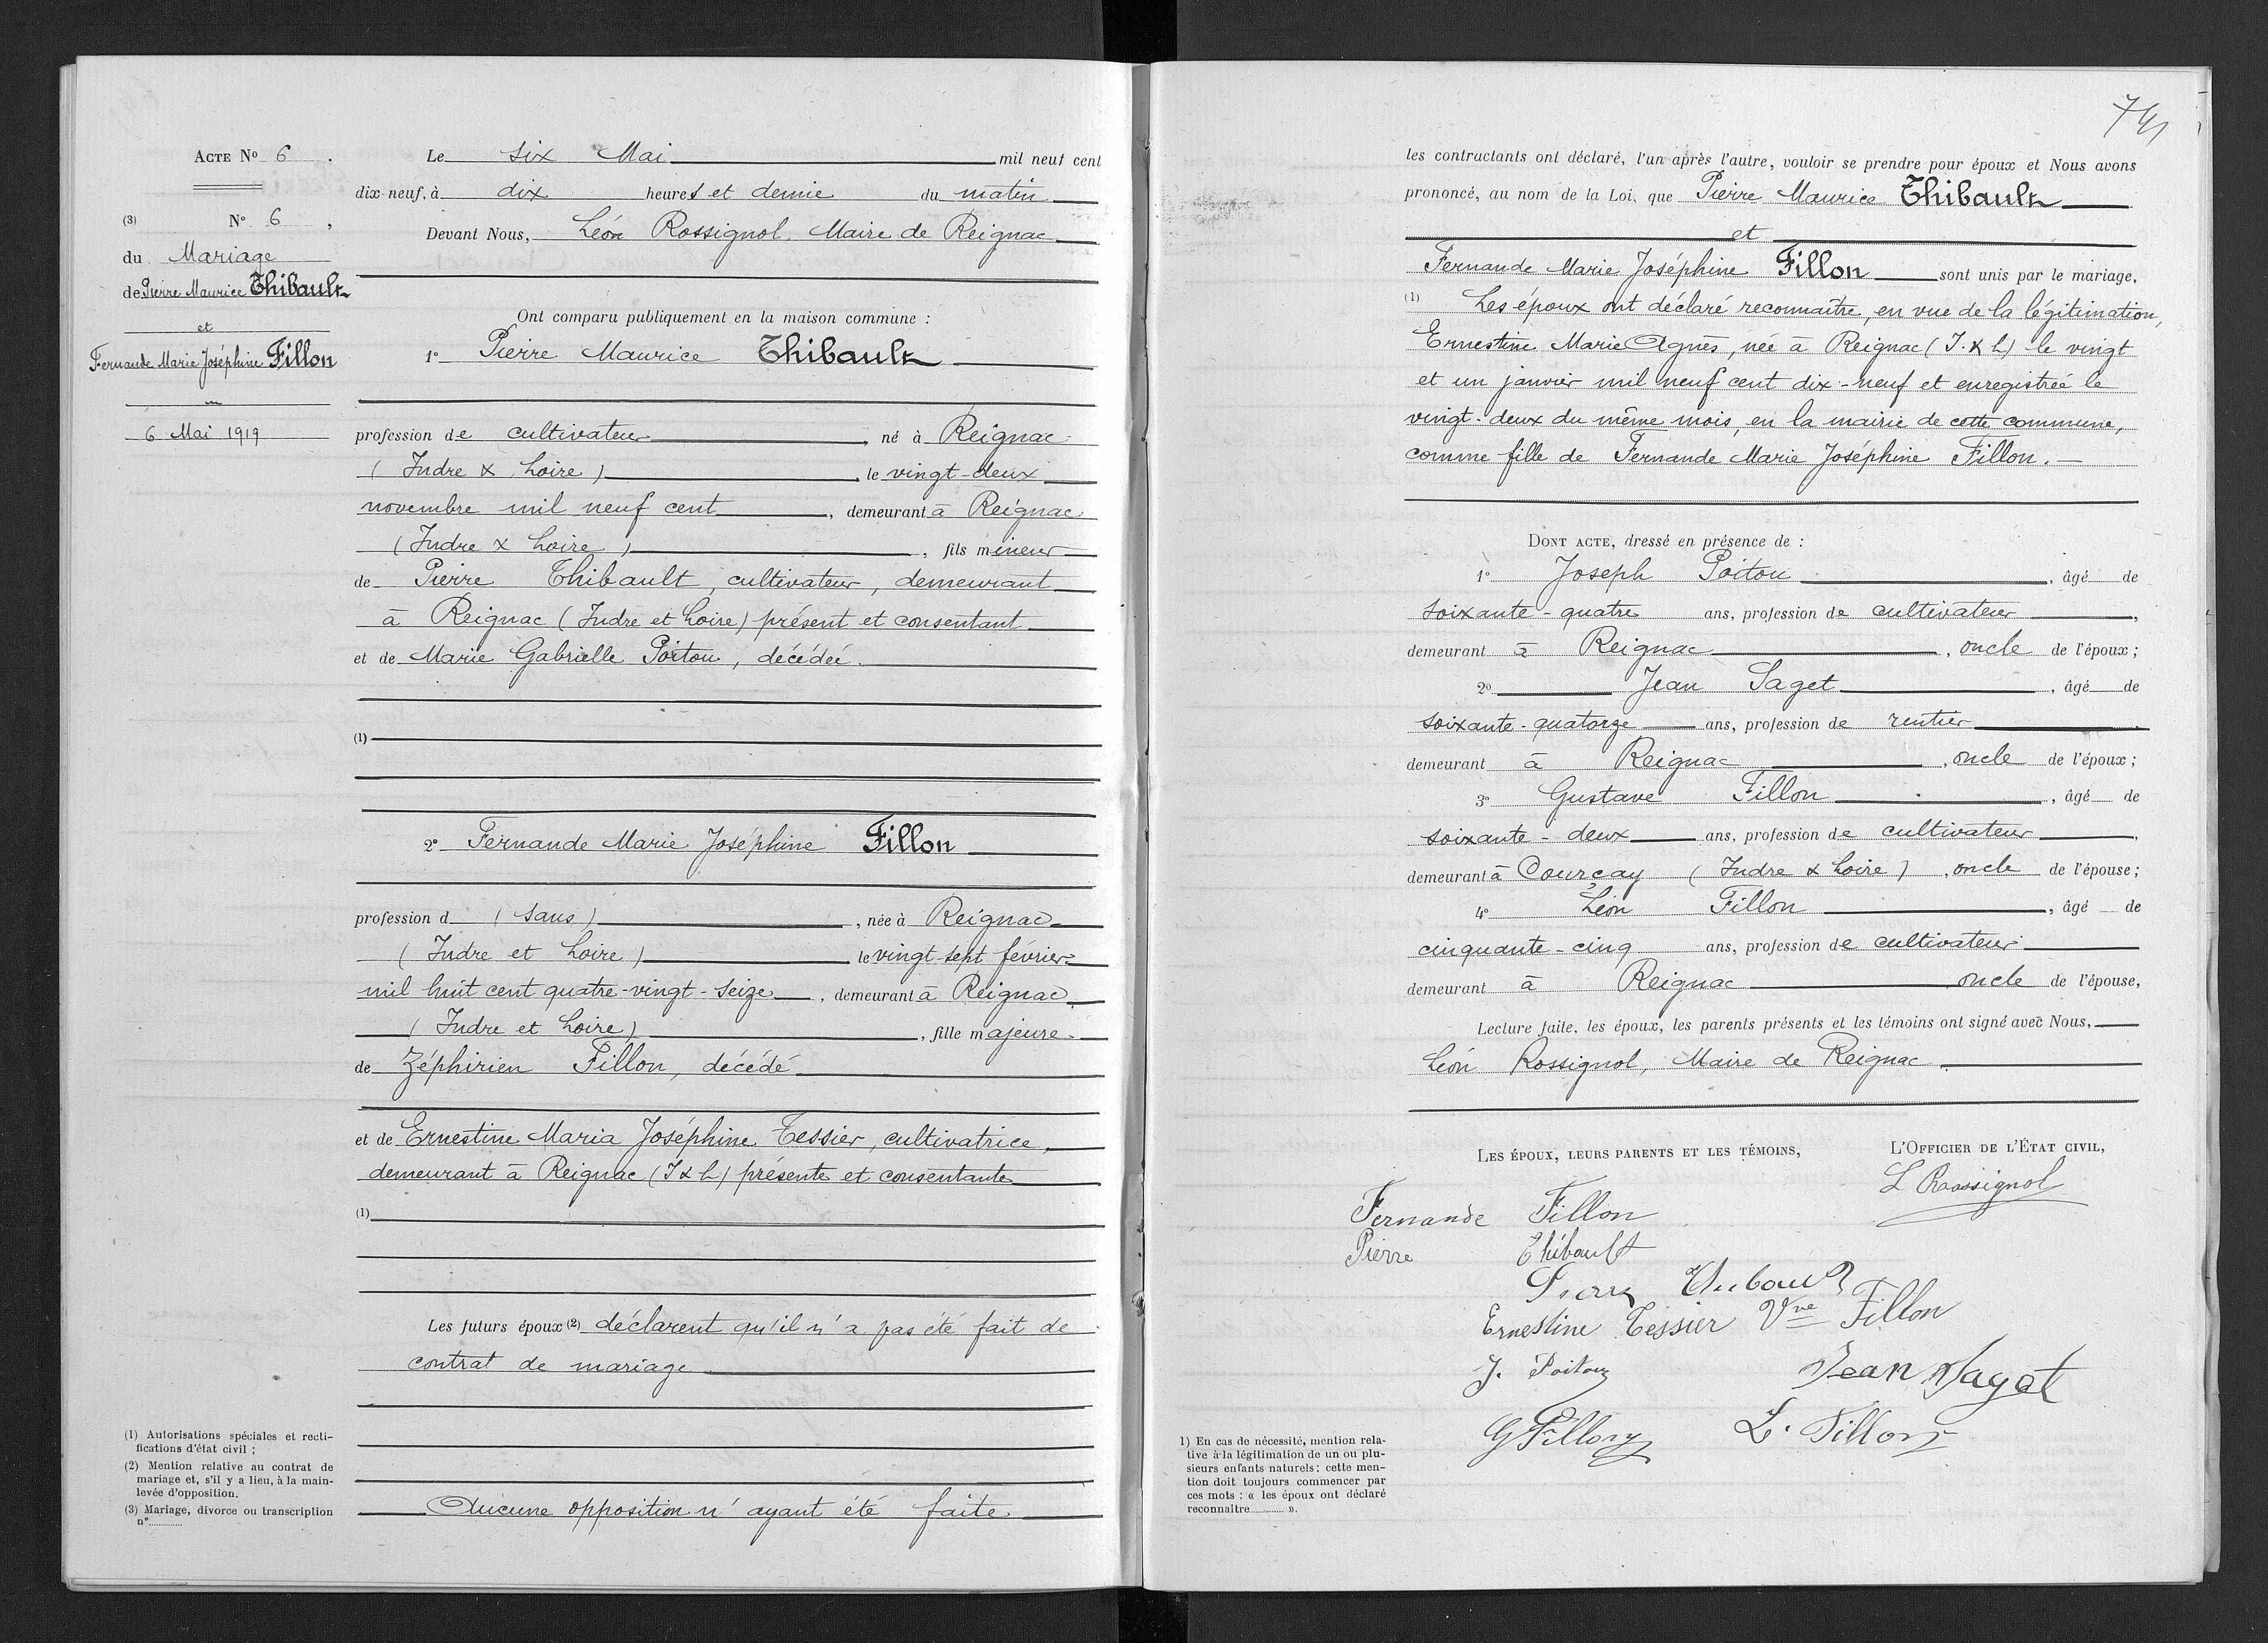 Acte No 6.
(3) No 6,
du Mariage
de Pierre Maurice Thibault
et
Fernande Marie Joséphine Fillon
6 Mai 1919
(1) Autorisations spéciales et recti-
fications d'état civil ;
(2) Mention relative au contrat de
mariage et, s'il y a lieu, à la main-
levée d'opposition.
(3) Mariage, divorce ou transcription
n°
Le six Mai mil neuf cent
dix-neuf, à dix heures et demie du matin
Devant Nous, Léon Rossignol, Maire de Reignac
Ont comparu publiquement en la maison commune :
1° Pierre Maurice Thibault
profession de cultivateur, né à Reignac
(Indre & Loire), le vingt-deux
novembre mil neuf cent, demeurant à Reignac
(Indre & Loire), fils mineur
de Pierre Thibault, cultivateur, demeurant
à Reignac (Indre et Loire) présent et consentant
et de Marie Gabrielle Poitou, décédée.
(1)
2° Fernande Marie Joséphine Fillon
profession d (sans), née à Reignac
(Indre et Loire), le vingt-sept février
mil huit cent quatre-vingt-seize, demeurant à Reignac
(Indre et Loire), fille majeure
de Zéphirien Fillon, décédé
et de Ernestine Maria Joséphine Tessier, cultivatrice,
demeurant à Reignac (I & L) présente et consentante
(1)
Les futurs époux (2) déclarent qu'il n'a pas été fait de
contrat de mariage
Aucune opposition n'ayant été faite
les contractants ont déclaré, l'un après l'autre, vouloir se prendre pour époux et Nous avons
prononcé, au nom de la Loi, que Pierre Maurice Thibault
et
Fernande Marie Joséphine Fillon sont unis par le mariage,
(1) Les époux ont déclaré reconnaître, en vue de la légitimation,
Ernestine Marie Agnès, née à Reignac (I. & L) le vingt
et un janvier mil neuf cent dix-neuf et enregistrée le
vingt-deux du même mois, en la mairie de cette commune,
comme fille de Fernande Marie Joséphine Fillon.
Dont acte, dressé en présence de :
1° Joseph Poitou, âgé de
soixante-quatre ans, profession de cultivateur,
demeurant à Reignac, oncle de l'époux ;
2° Jean Saget, âgé de
soixante-quatorze ans, profession de rentier
demeurant à Reignac, oncle de l'époux ;
3° Gustave Fillon, âgé de
soixante-deux ans, profession de cultivateur,
demeurant à Courçay (Indre & Loire), oncle de l'épouse ;
4° Léon Fillon, âgé de
cinquante-cinq ans, profession de cultivateur
demeurant à Reignac oncle de l'épouse,
Lecture faite, les époux, les parents présents et les témoins ont signé avec Nous,
Léon Rossignol, Maire de Reignac
Les époux, leurs parents et les témoins,
L'Officier de l'État civil,
L Rossignol
Fernande Fillon
Pierre Thibault
Pierre Thibault
Ernestine Tessier Vve Fillon
J. Poitou Jean Saget
G Fillon L. Fillon
1) En cas de nécessité, mention rela-
tive à la légitimation de un ou plu-
sieurs enfants naturels ; cette men-
tion doit toujours commencer par
ces mots : « les époux ont déclaré
reconnaître ».